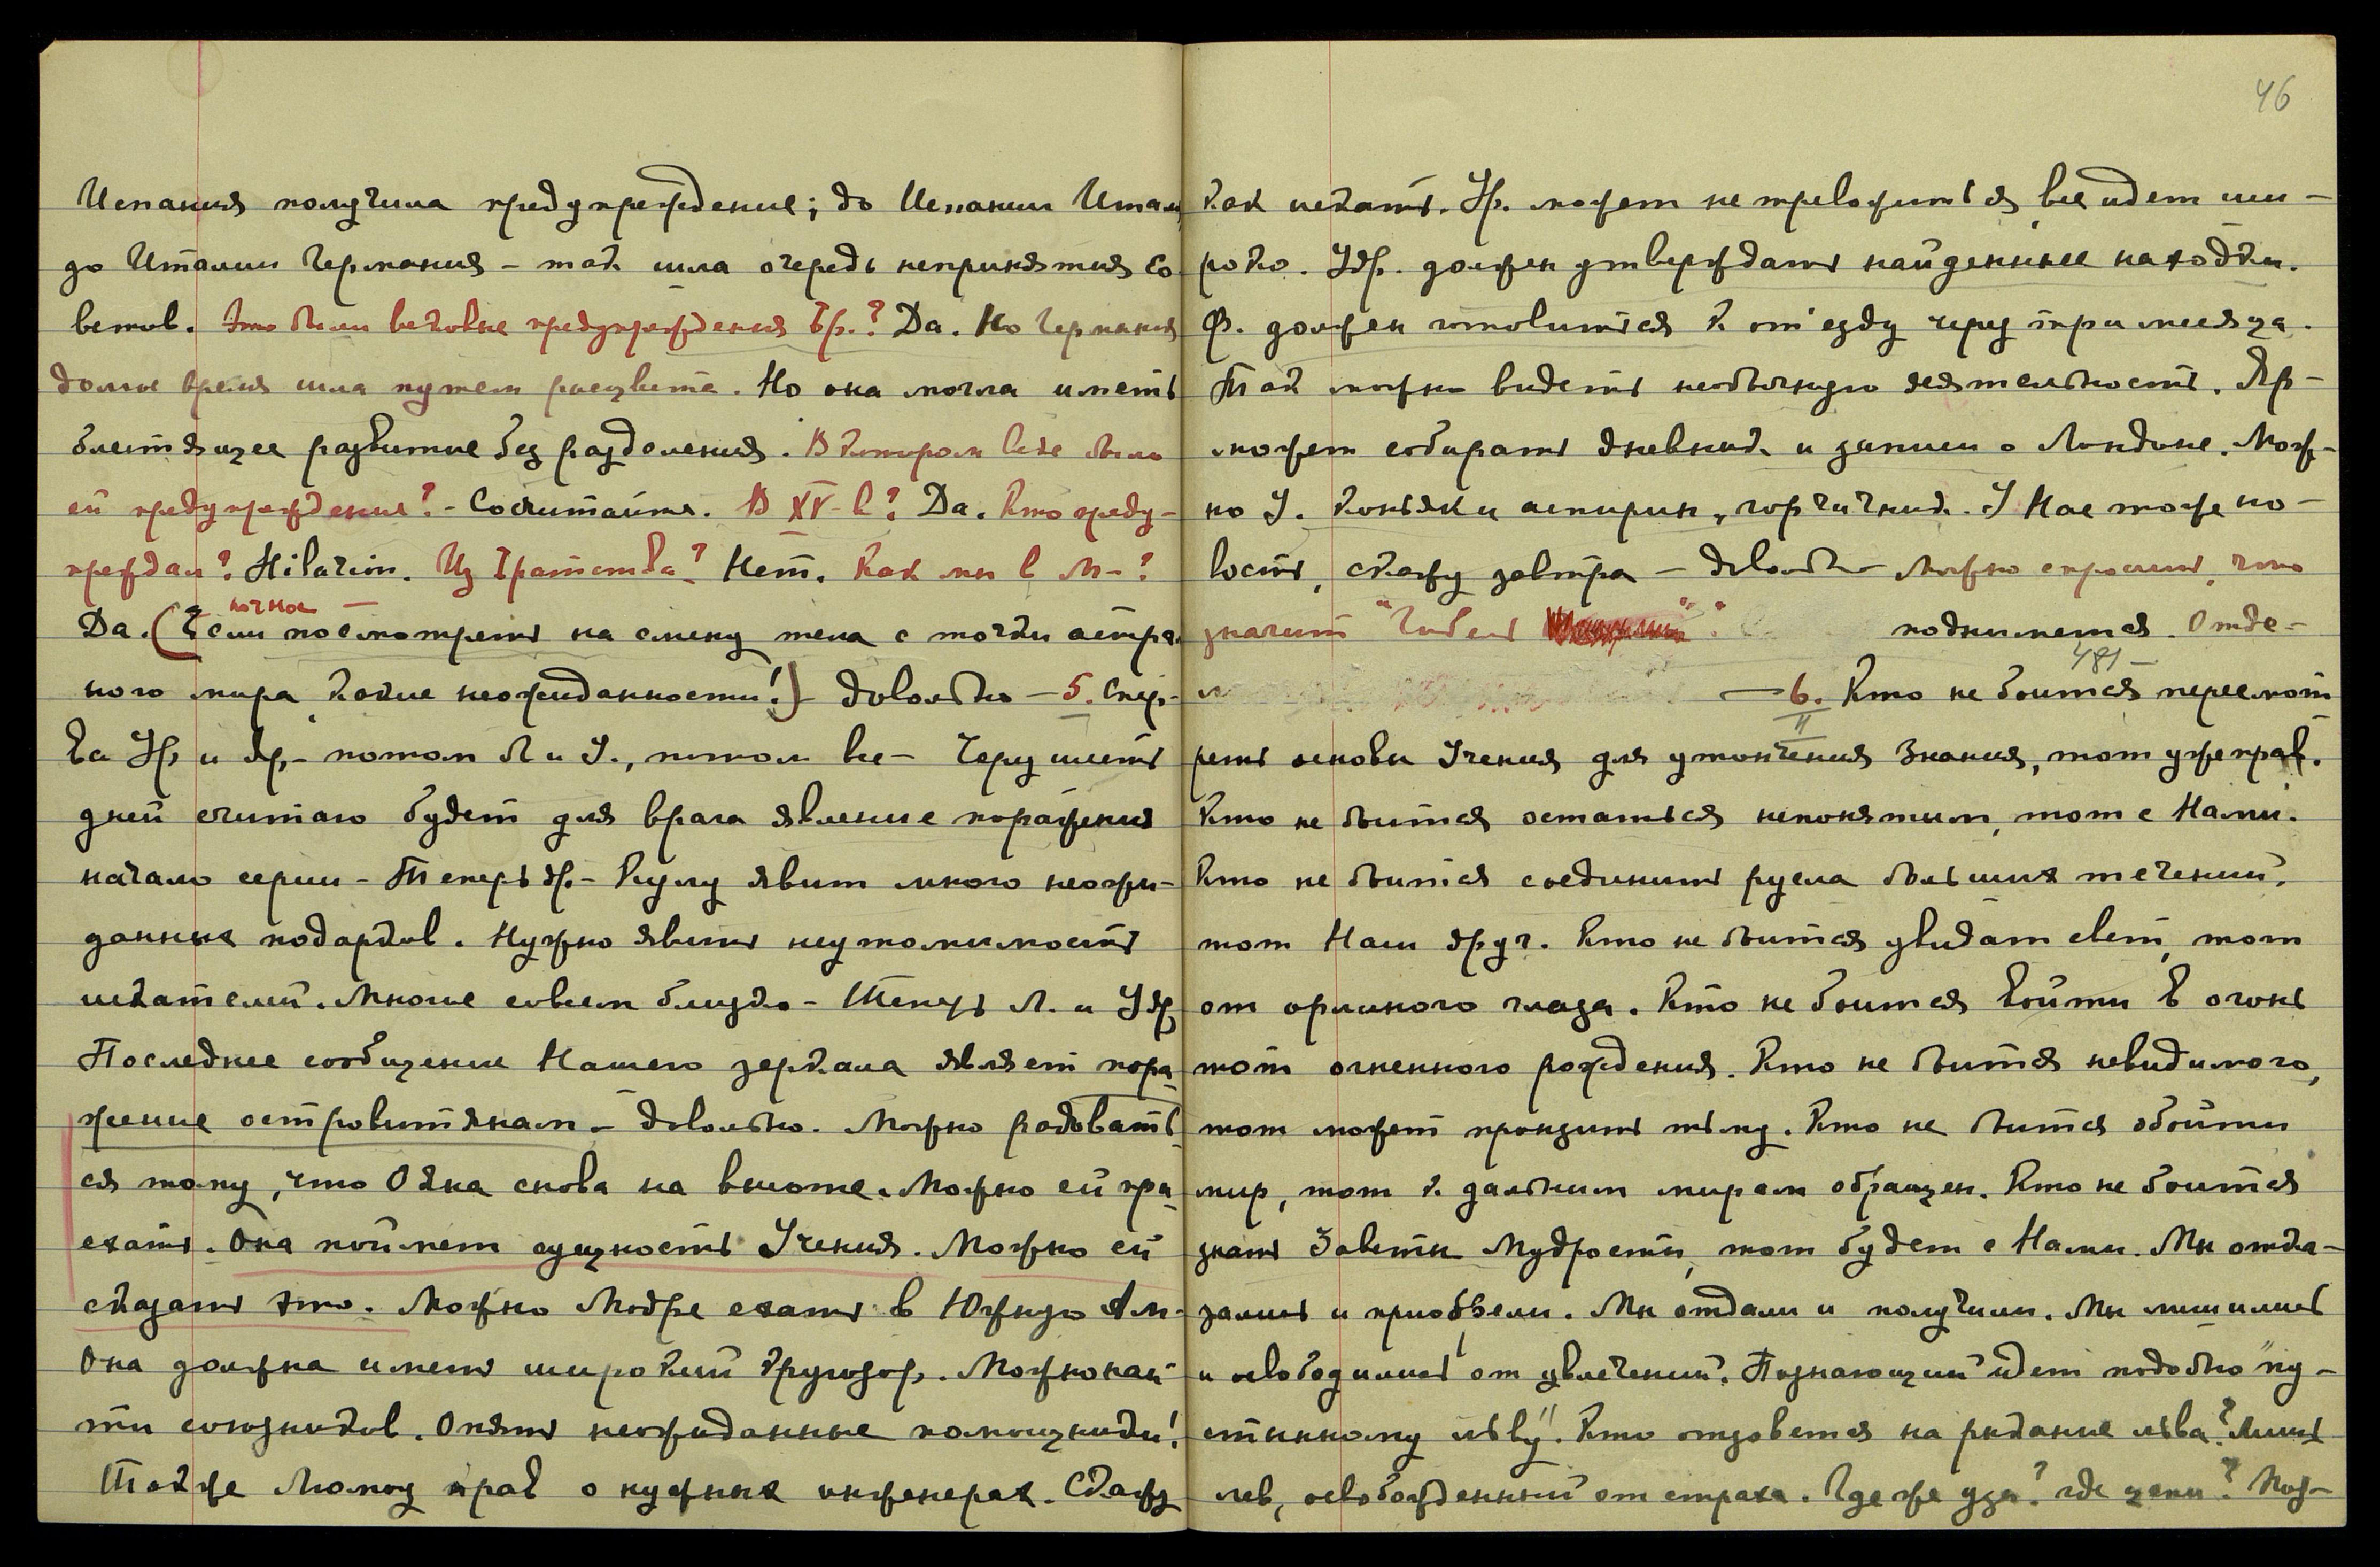 46
Испания получила предупреждение; до Испании Итал,
до Италии Германия – так шла очередь непринятия Со-
ветов. Это были вековые предупреждения Бр.? Да. Но Германия
долгое время шла путем расцвета. Но она могла иметь
блестящее развитие без разделения. В котором веке было
ей предупреждение? – Сосчитайте. В XV-в? Да. Кто преду-
преждал? Hilarion. Из Братства? Нет. Как мы в М–?
ночное
Да. (Если посмотреть на смену тела с точки астра.
ного мира, какие неожиданности!) Довольно – 5. Спер-
ва Ур и Яр, – потом Л и У., потом все – Через шесть
дней считаю будет для врага явление поражения
начало серии – Теперь Яр. – Кулу явит много неожи-
данных подарков. Нужно явить неутомимость
искателей. Многое совсем близко – Теперь Л. и Удр.
Последнее сообщение Нашего зеркала являет пора-
жение островитянам – довольно. Можно радовать-
ся тому, что Ояна снова на высоте. Можно ей при-
ехать. Она поймет сущность Учения. Можно ей
сказать это. Можно Модре ехать в Южную Ам-
Она должна иметь широкий кругозор. Можно най-
ти союзников. Опять неожиданные помощники!
Также Люмоу прав о нужных инженерах. Скажу
как искать. Ур. может не тревожиться, все идет ши-
роко. Удр. должен утверждать найденные находки.
Ф. должен готовиться к от'езду через три месяца.
Так можно видеть необычную деятельность. Яр-
может собирать дневник и записи о Лондоне. Мож-
но У. коньяк и аспирин, горчичник. У Нас тоже но-
вость, скажу завтра – довольно – Можно спросить, что
значит "гибель
поднимется. Отде-
481 –
– 6. Кто не боится пересмот
II
реть основы Учения для утончения Знания, тот уже прав.
Кто не боится остаться непонятым, тот с Нами.
Кто не боится соединить русла больших течений,
тот Наш друг. Кто не боится увидать свет, тот
от орлиного глаза. Кто не боится войти в огонь
тот огненного рождения. Кто не боится невидимого,
тот может пронзить тьму. Кто не боится обойти
мир, тот к дальним мирам обращен. Кто не боится
знать Заветы Мудрости, тот будет с Нами. Мы отка-
зались и приобрели. Мы отдали и получили. Мы лишились
и освободились от увлечений. Познающий идет подобно "пу-
стынному льву". Кто отзовется на рыдание льва? Лишь
лев, освобожденный от страха. Где же узы? где цепи? Поз-